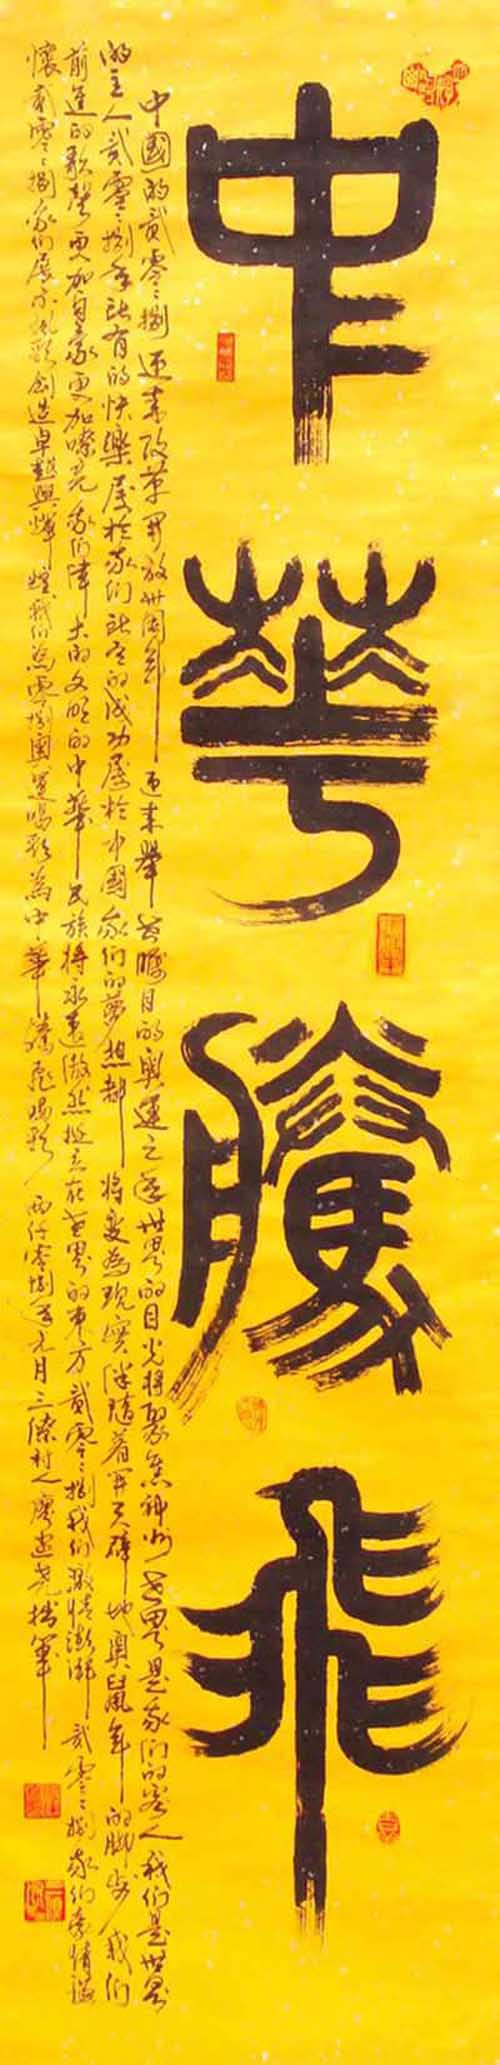 中華騰飛
中國的貳零々捌迎来改革開放卅周年迎来舉世矚目的奧運之年世界的目光將聚焦神州世界是我们的客人我们是世界
的主人貳零々捌年所有的快樂属於我们所有的成功属於中國我们的夢想都將變為現實伴隨着開天辟地奧鼠年的脚步我们
前進的歌聲更加自豪更加嘹亮我们偉大的文明的中華民族將永遠傲然挺立在世界的東方貳零々捌我们激情澎湃貳零々捌我们豪情滿
懷貳零々捌我们展示歌創造卓越與輝煌我们為零捌奧運喝彩為中華騰飛喝彩两仟零捌年元月三僚村人廖筆